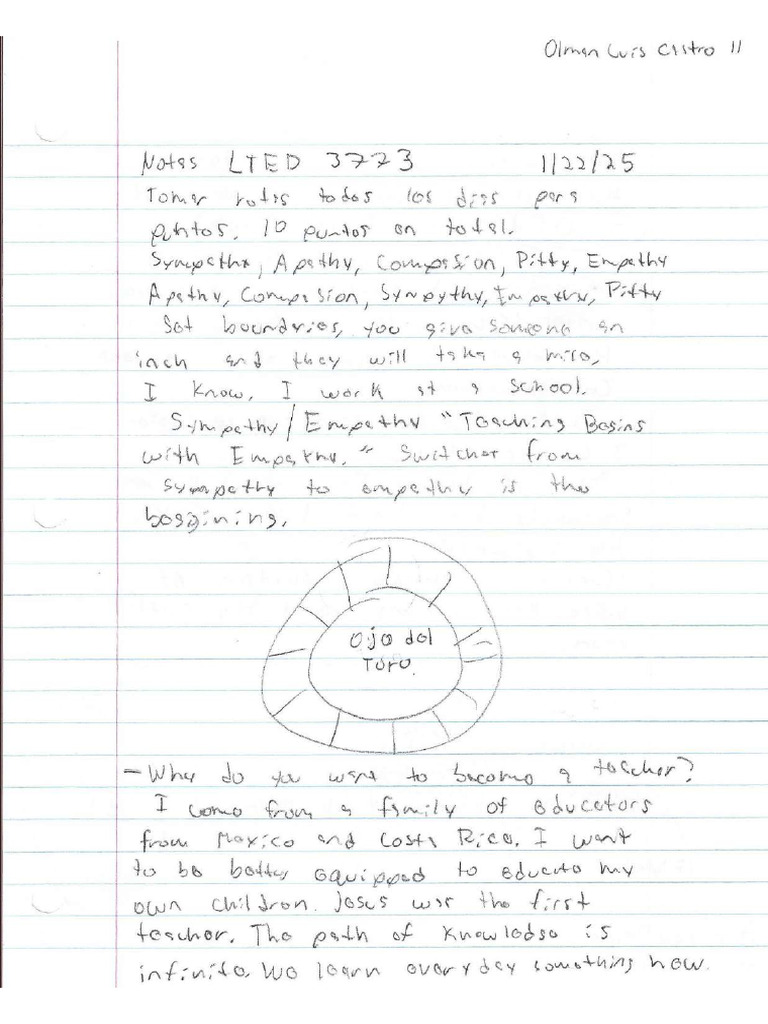 Olman Luis Castro II
Notes LTED 3773 1/22/25
Tomar notas todos los dias para
puntos. 10 puntos en total.
Sympathy, Apathy, Compasion, Pitty, Empathy
Apathy, Compasion, Sympythy, Empathy, Pitty
Set boundries, you give someone an
inch and they will take a mile,
I know, I work at a school.
Sympathy/Empathy "Teaching Begins
with Empathy." Switcher from
sympathy to empathy is the
beggining.
Ojo del
Toro.
- Why do you want to become a teacher?
I come from a family of educators
from Mexico and Costa Rica. I want
to be better equipped to educate my
own children. Jesus was the first
teacher. The path of knowledge is
infinite. We learn everyday something new.